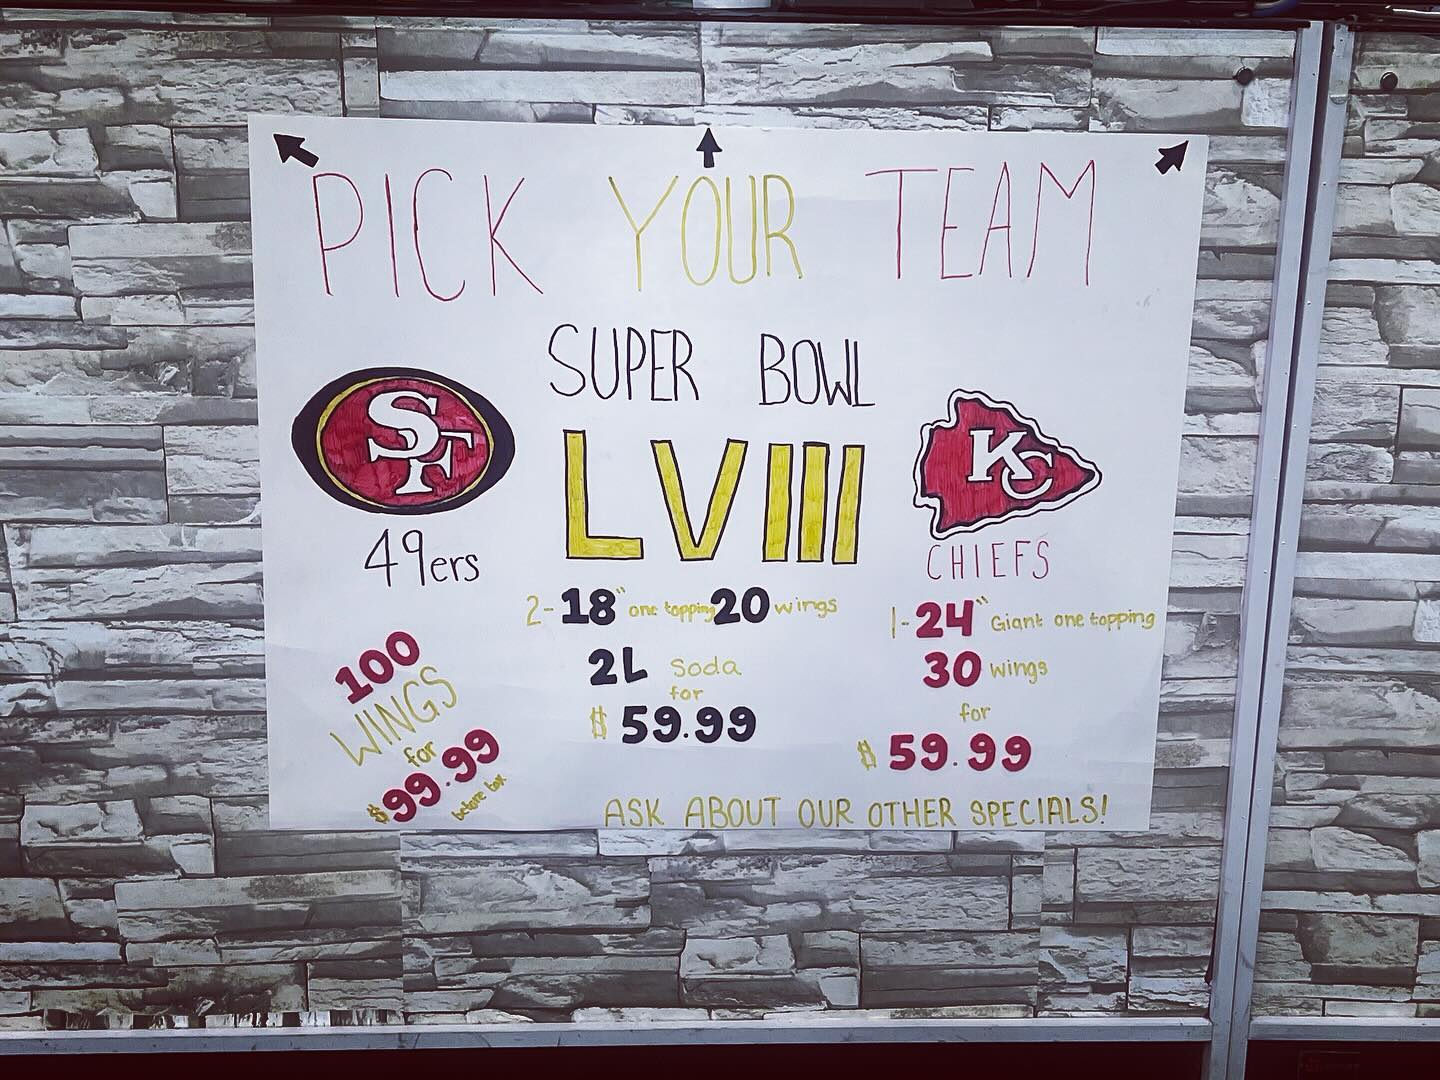 PICK YOUR TEAM
SUPER BOWL
LVIII
SF
49ers
KC
CHIEFS
100
WINGS
for
$99.99
before tax
2-18" one topping 20 wings
2L Soda
for
$59.99
1-24" Giant one topping
30 wings
for
$59.99
ASK ABOUT OUR OTHER SPECIALS!